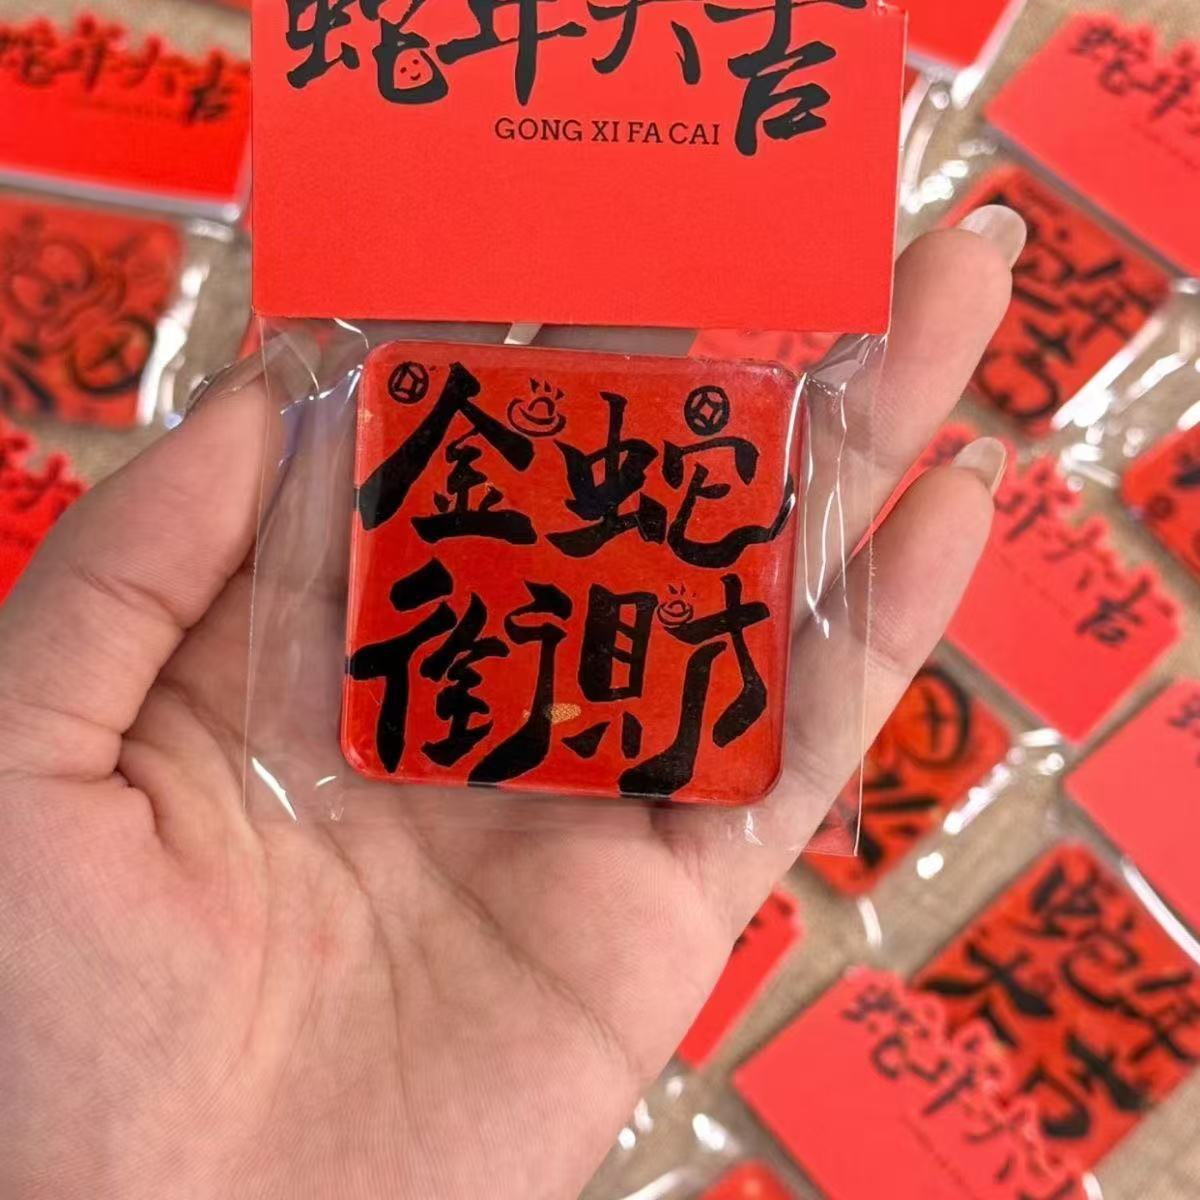 蛇年大吉
GONG XI FA CAI
金蛇
衔财
蛇年大吉
蛇年
蛇年大吉
蛇年
大吉
蛇年大吉